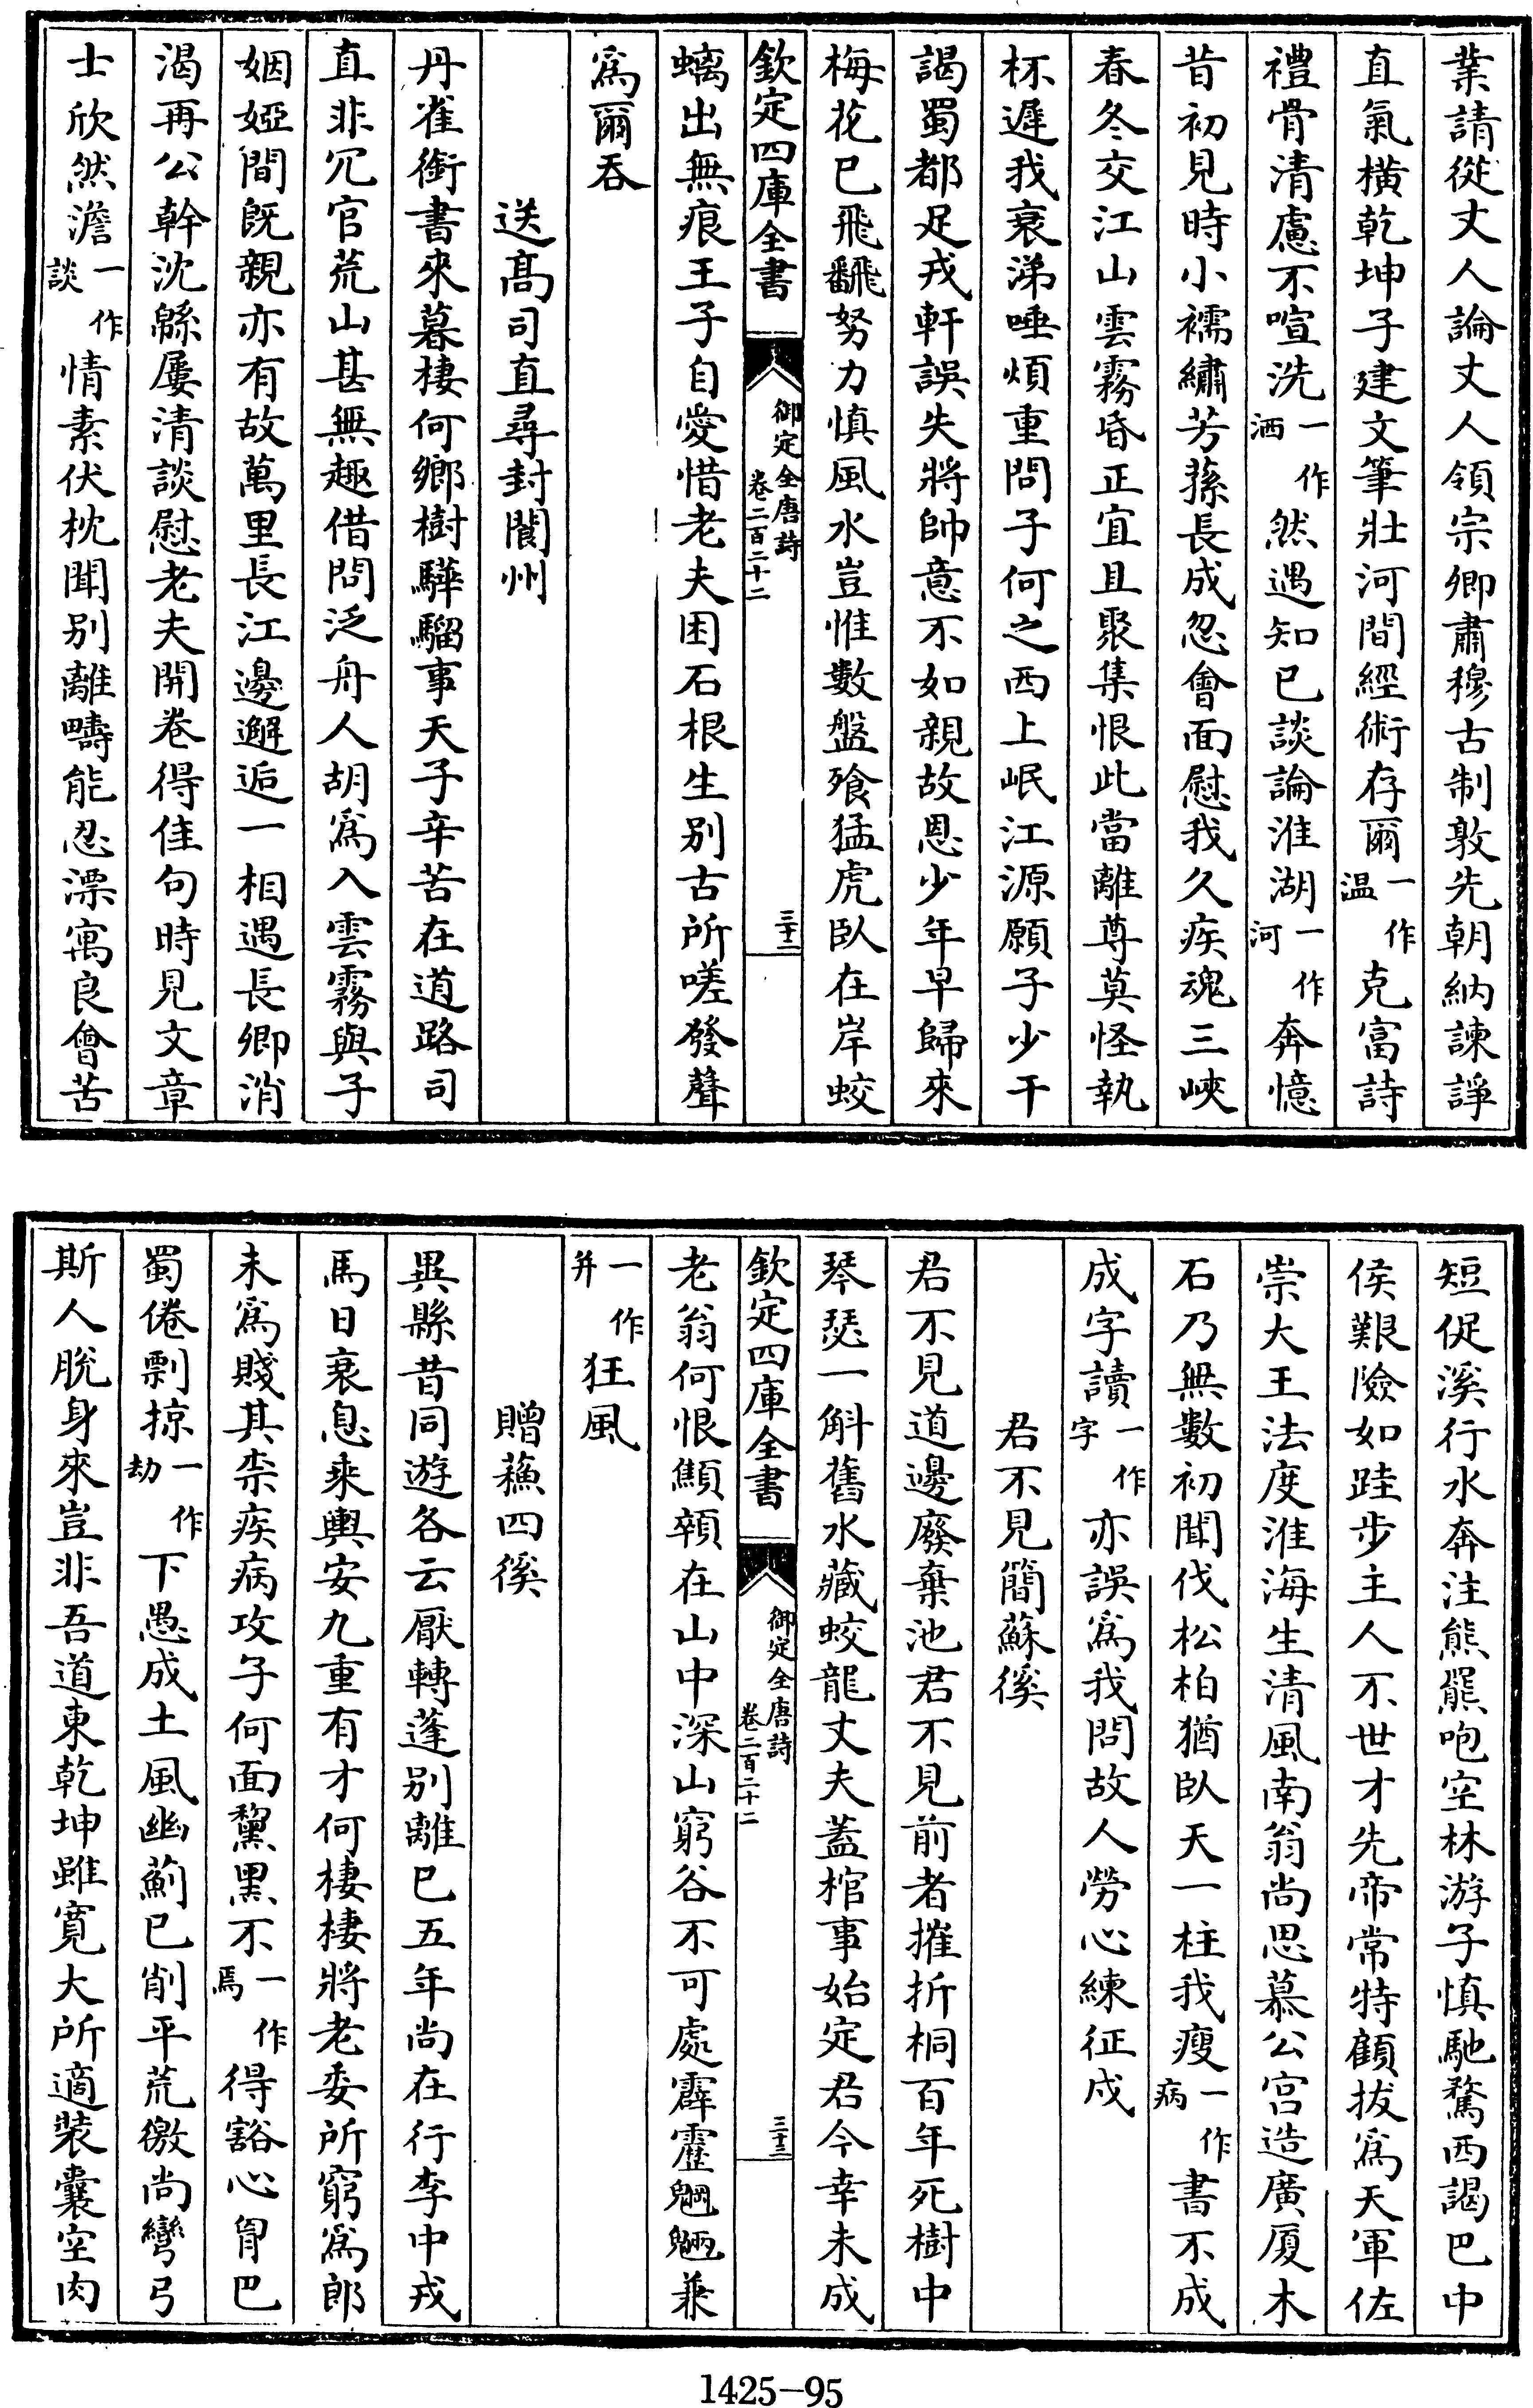 業請從丈人論丈人領宗卿肅穆古制敦先朝納諫諍
直氣橫乾坤子建文筆壯河間經術存爾一作温克富詩
禮骨清慮不喧洗一作洒然遇知已談論淮湖一作河奔憶
昔初見時小襦繡芳蓀長成忽會面慰我久疾魂三峽
春冬交江山雲霧昏正宜且聚集恨此當離尊莫怪執
杯遲我衰涕唾煩重問子何之西上岷江源願子少干
謁蜀都足戎軒誤失將帥意不如親故恩少年早歸來
梅花已飛翻努力慎風水豈惟數盤飱猛虎臥在岸蛟
欽定四庫全書
御定全唐詩
卷二百二十二
三十二
螭出無痕王子自愛惜老夫困石根生别古所嗟發聲
爲爾吞
送髙司直尋封閬州
丹雀銜書來暮棲何鄉樹驊騮事天子辛苦在道路司
直非冗官荒山甚無趣借問泛舟人胡爲入雲霧與子
姻婭間既親亦有故萬里長江邊邂逅一相遇長卿消
渴再公幹沈緜屢清談慰老夫開卷得佳句時見文章
士欣然澹一作談情素伏枕聞别離疇能忍漂寓良會苦
短促溪行水奔注熊羆咆空林游子慎馳騖西謁巴中
侯艱險如跬步主人不世才先帝常特顧拔爲天軍佐
崇大王法度淮海生清風南翁尚思慕公宫造廣厦木
石乃無數初聞伐松柏猶臥天一柱我瘦一作病書不成
成字讀一作字亦誤爲我問故人勞心練征戍
君不見簡蘇徯
君不見道邊廢棄池君不見前者摧折桐百年死樹中
琴瑟一斛舊水藏蛟龍丈夫蓋棺事始定君今幸未成
欽定四庫全書
御定全唐詩
卷二百二十二
三十三
老翁何恨顦顇在山中深山窮谷不可處霹靂魍魎兼
一作并狂風
贈蘇四徯
異縣昔同遊各云厭轉蓬别離已五年尚在行李中戎
馬日衰息乘輿安九重有才何棲棲將老委所窮爲郎
未爲賤其柰疾病攻子何面黧黑不一作焉得豁心胷巴
蜀倦剽掠一作劫下愚成土風幽薊已削平荒徼尚彎弓
斯人脫身來豈非吾道東乾坤雖寛大所適裝囊空肉
1425-95